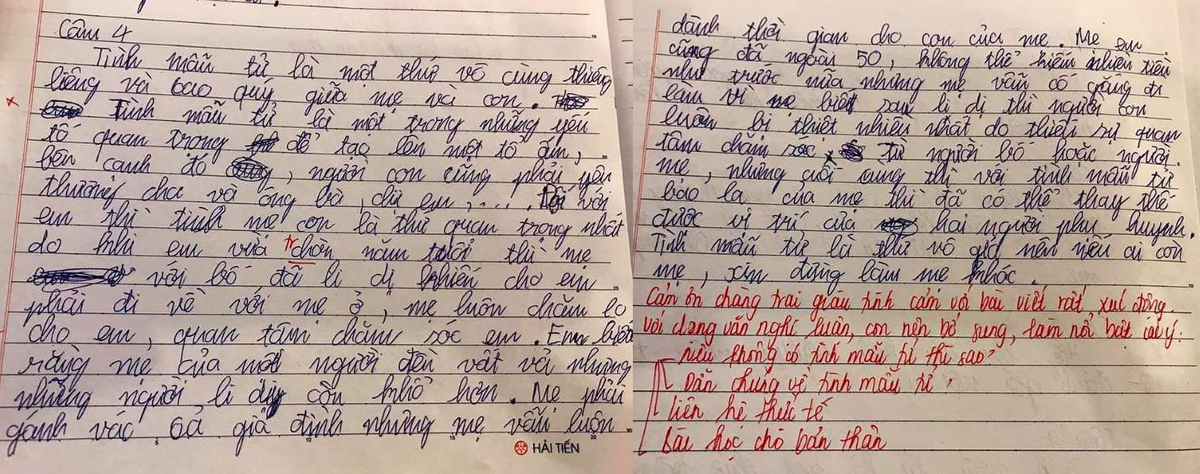 Câu 4
Tình mẫu tử là một thứ vô cùng thiêng
liêng và bao quý giữa mẹ và con.
Tình mẫu tử là một trong những yếu
tố quan trong để tạo lên một tổ ấm,
bên cạnh đó, người con cũng phải yêu
thương cha và ông bà, chị em, ..... Đối với
em thì tình mẹ con là thứ quan trọng nhất
do khi em vừa chòn năm tuổi thì mẹ
tr
với bố đã li dị khiến cho em
phải đi về với mẹ ở, mẹ luôn chăm lo
cho em, quan tâm chăm sóc em. Em biết
rằng mẹ của một người đều vất vả nhưng
những người li dị còn khổ hơn. Mẹ phải
gánh vác cả gia đình nhưng mẹ vẫn luôn
HẢI TIẾN
dành thời gian cho con của mẹ. Mẹ em
cũng đã ngoài 50, không thể kiếm nhiều tiền
như trước nữa nhưng mẹ vẫn cố gắng đi
làm vì mẹ biết sau li dị thì người con
luôn bị thiệt nhiều nhất do thiếu sự quan
tâm chăm sóc từ người bố hoặc người
mẹ, nhưng cuối cùng thì với tình mẫu tử
bao la của mẹ thì đã có thể thay thế
được vị trí của hai người phụ huynh.
Tình mẫu tử là thứ vô giá nên nếu ai còn
mẹ, xin đừng làm mẹ khóc.
Cảm ơn chàng trai giàu tình cảm với bài viết rất xúc động.
Với dạng văn nghị luận, con nên bổ sung, làm nổi bật các ý:
Nếu không có tình mẫu tử thì sao?
Dẫn chứng về tình mẫu tử
Liên hệ thực tế
Bài học cho bản thân